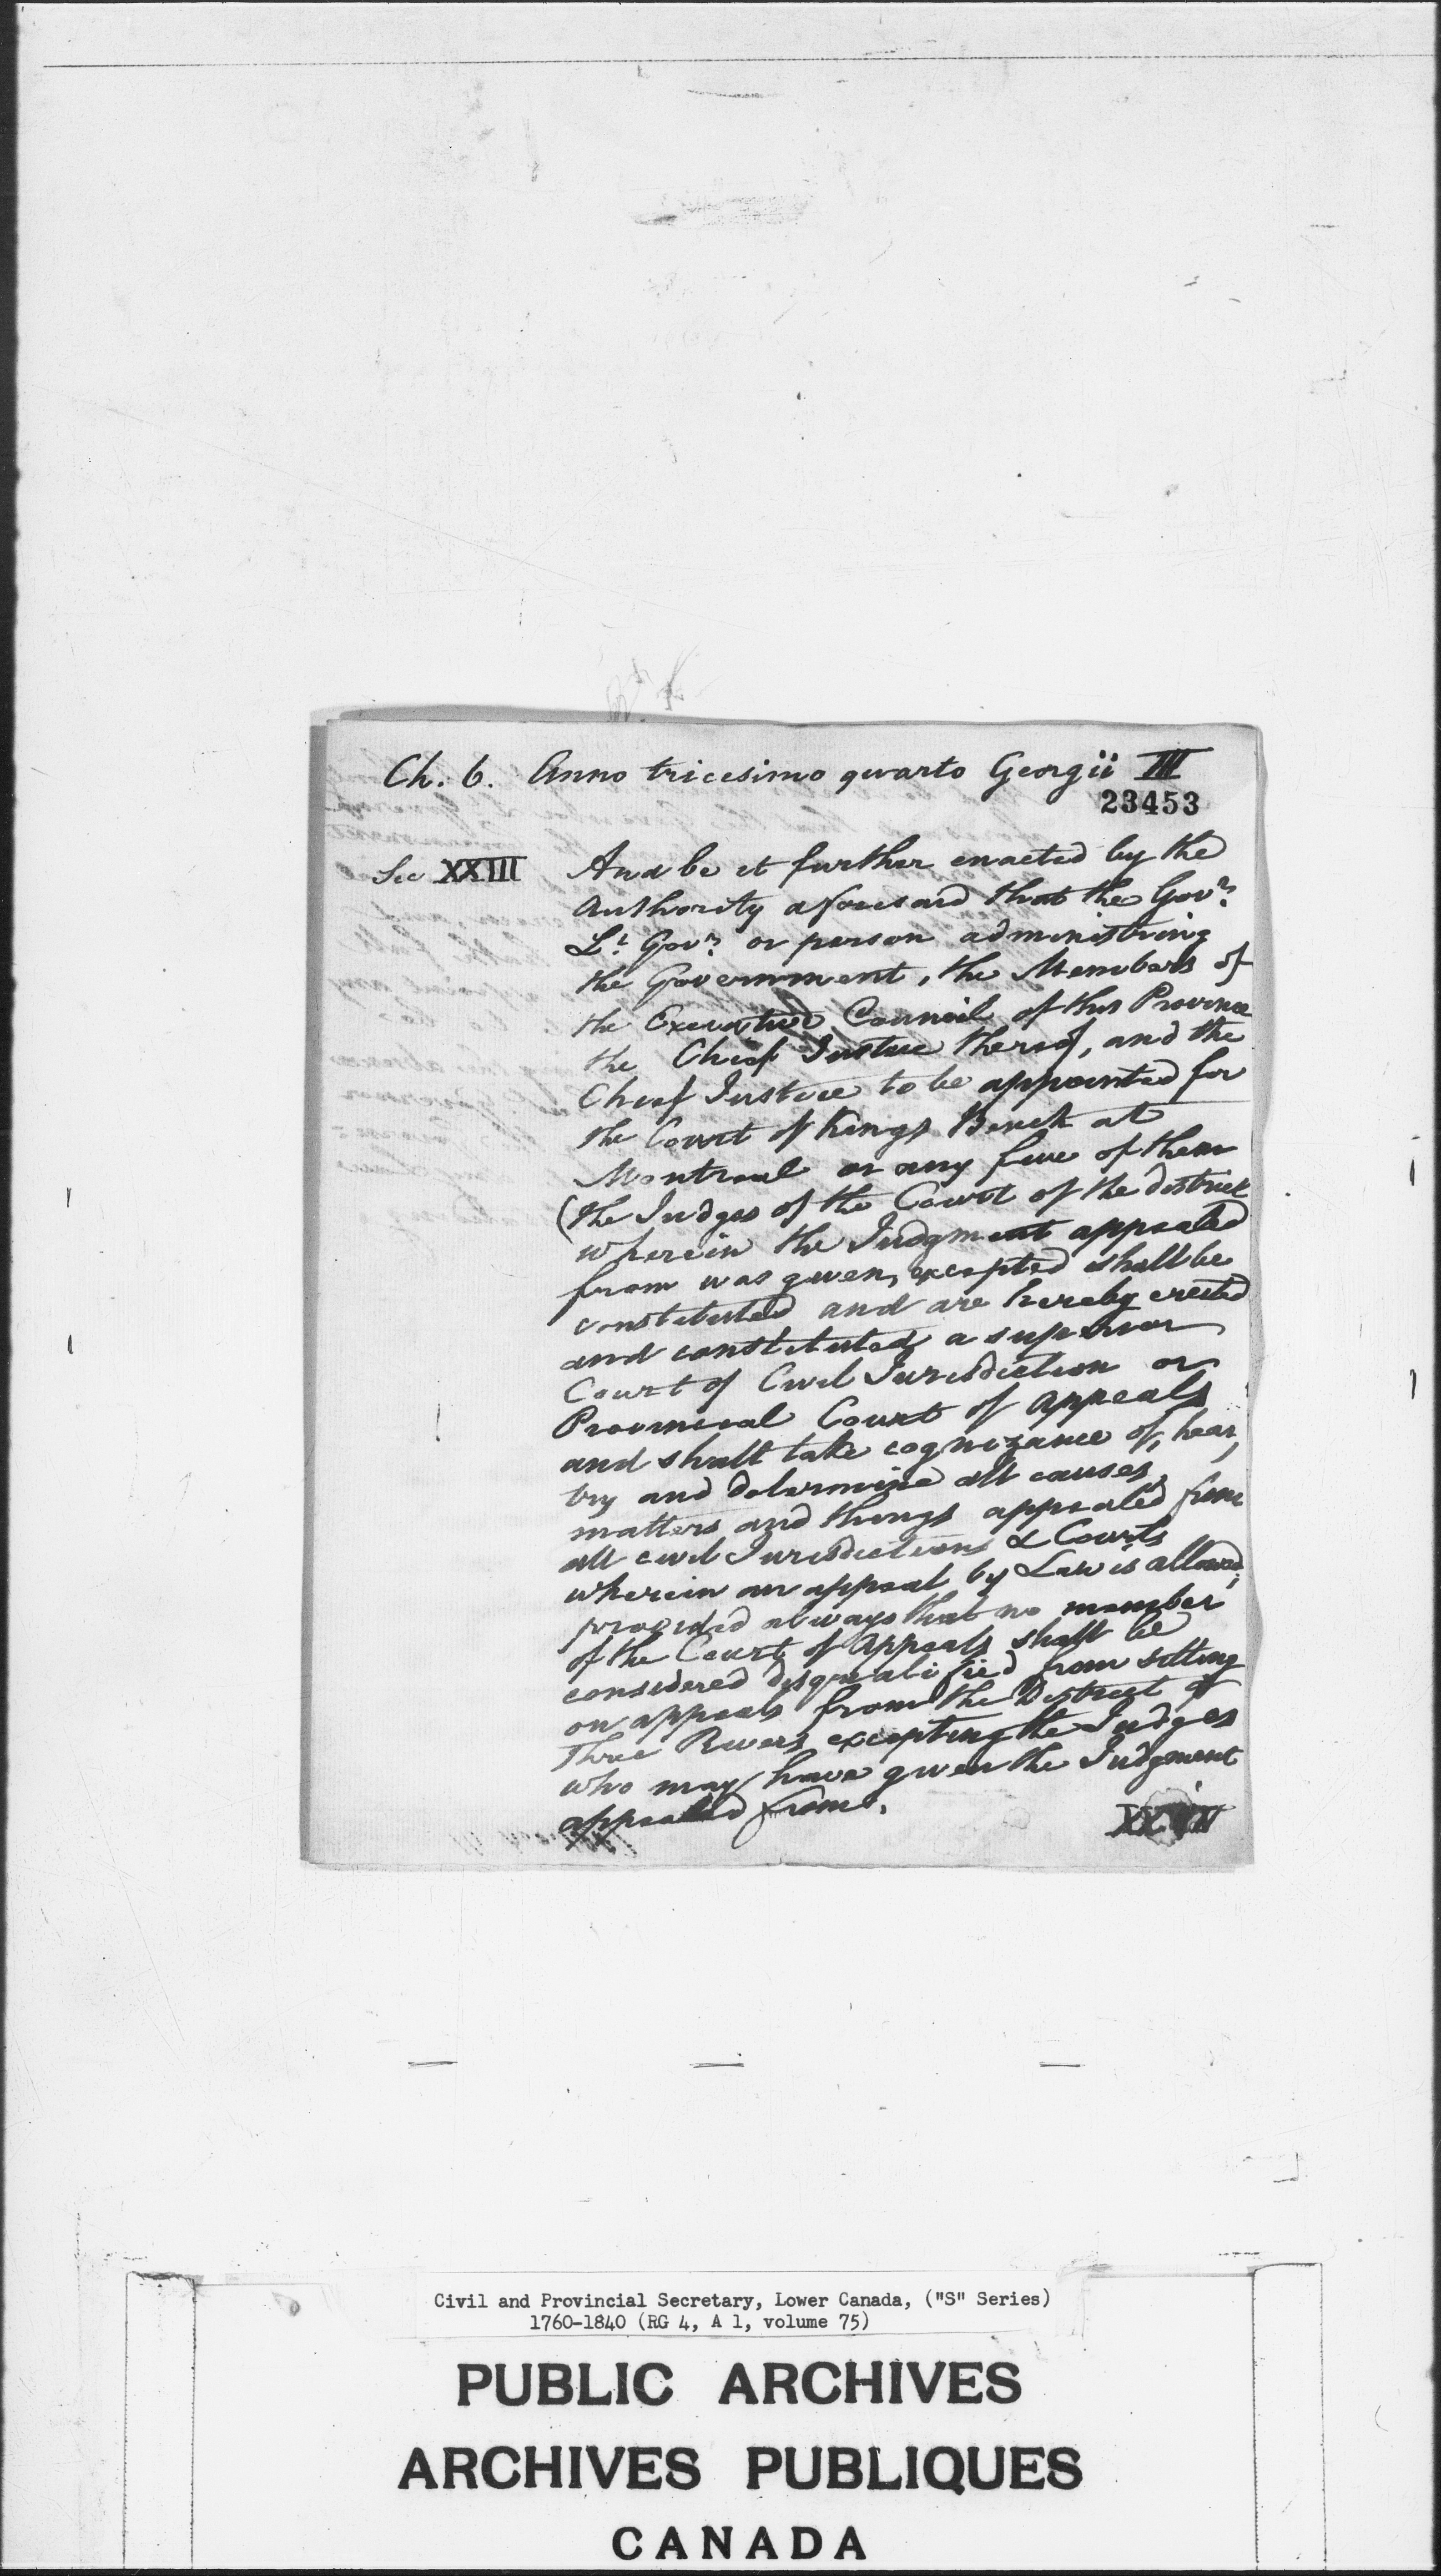 Ch. 6. Anno tricesimo quarto Georgii III
23453
Sec XXIII
And be it further enacted by the
Authority aforesaid that the Govr.
Lt. Govr. or person administring
the Government, the Members of
the Executive Council of this Province
the Chief Justice thereof, and the
Chief Justice to be appointed for
the Court of Kings Bench at
Montreal or any five of them
(the Judges of the Court of the district
wherein the Judgment appealed
from was given, excepted shall be
constituted and are hereby erected
and constituted a superior
Court of Civil Jurisdiction or
Provincial Court of Appeals
and shall take cognizance of, hear,
try and determine all causes,
matters and things appealed from
all civil Jurisdictions & Courts
wherein an appeal by Law is allowed;
provided always that no member
of the Court of Appeals shall be
considered disqualified from sitting
on appeals from the District of
Three Rivers excepting the Judges
who may have given the Judgment
appealed from.
Civil and Provincial Secretary, Lower Canada, ("S" Series)
1760-1840 (RG 4, A 1, volume 75)
PUBLIC ARCHIVES
ARCHIVES PUBLIQUES
CANADA